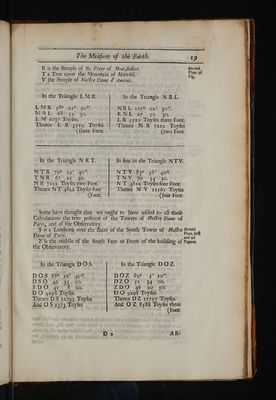 The Measure of the Earth. 19
R is the Steeple of St. Peter of Montdidier.
T a Tree upon the Mountain of Moreüil.
V the Steeple of Nostre Dame d'Amiens.
Second Plate 3d Fig.
In the Triangle L M R.
L M R 58° 21' 50".
M R L 68 52 30.
L M 6037 Toyses.
Thence L R Toyses
(three Foot.
In the Triangle N R L.
N R L 115° 01' 30".
R N L 27 50 30.
L R Toyses three Foot.
Thence N R 7122 Toyses
(two Foot.
In the Triangle N R T.
N T R 72° 25' 40".
T N R 67 21 40.
N R 7122 Toyses two Foot.
Thence N T 4822 Toyses four
(Foot.
In fine in the Triangle N T V.
N T V 83° 58' 40".
T N V 70 34 30.
N T 4822 Toyses four Foot.
Thence N V 11161 Toyses
(four Foot.
Some have thought that we ought to have added to all these
Calculations the true position of the Towers of Nostre Dame of
Paris, and of the Observatory.
S is a Lanthorn over the stairs of the South Tower of Nostre
Dame of Paris.
Second Plate, first and 2d Figures.
Z is the middle of the South Face or Front of the building of
the Observatory.
In the Triangle D O S.
D O S 88° 16' 40".
D S O 46 35 00.
S D O 45 8 20.
D O 9298 Toyses.
Thence D S 12795 Toyses
And O S 9373 Toyses.
In the Triangle D O Z.
D O Z 82° 5' 10".
D Z O 51 34 00.
Z D O 46 20 50.
D O 9298 Toyses.
Thence D Z 11757 Toyses.
And O Z 8588 Toyses three
(Foot.
D 2 AR-